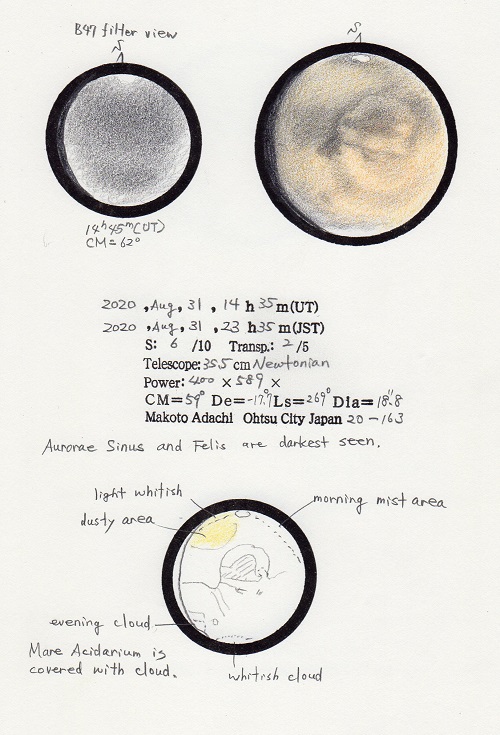 B47 filter view
S
S
14h 45m (UT)
CM = 62°
2020 , Aug, 31 , 14 h 35 m(UT)
2020 , Aug, 31 , 23 h 35 m(JST)
S: 6 /10 Transp.: 2 /5
Telescope: 35.5 cm Newtonian
Power: 400 × 589 ×
CM=59° De=-17.9° Ls=269° Dia=18."8
Makoto Adachi Ohtsu City Japan 20-163
Aurorae Sinus and Felis are darkest seen.
light whitish
morning mist area
dusty area
evening cloud
Mare Acidarium is
covered with cloud.
whitish cloud